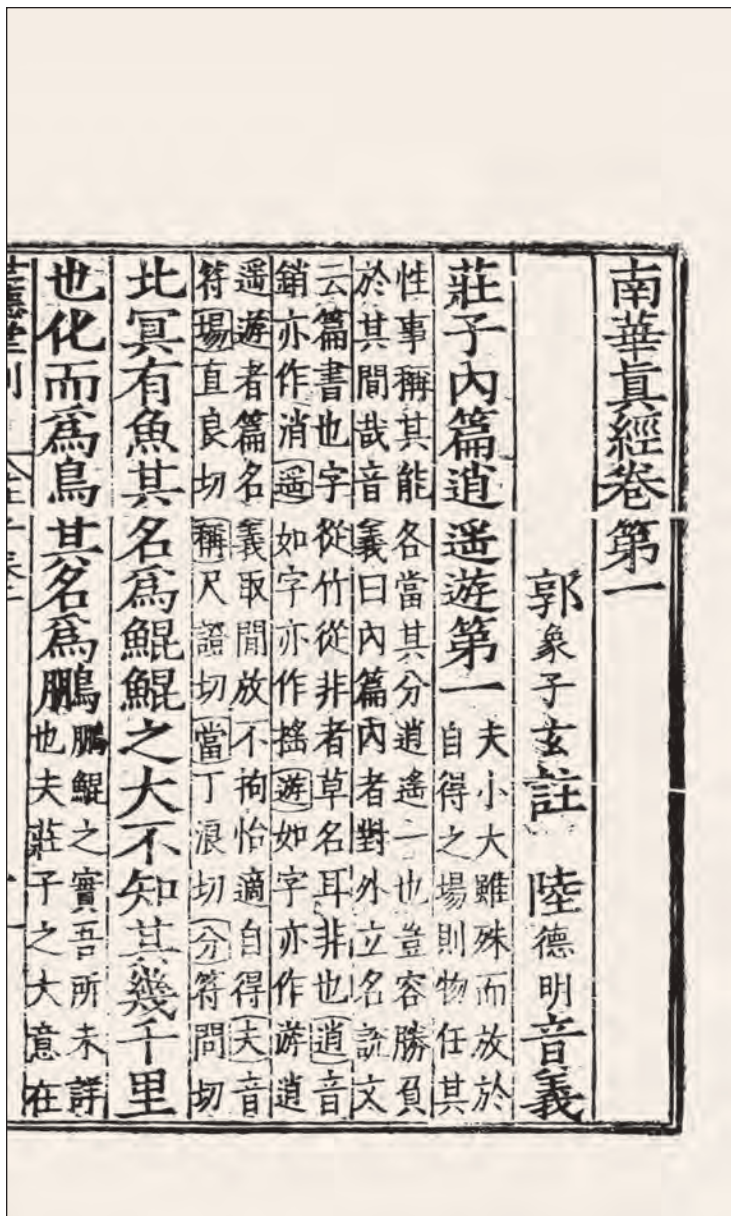 南華眞經卷第一
郭象子玄註　陸德明音義
莊子內篇逍遥遊第一
夫小大雖殊而放於
自得之場則物任其
性事稱其能各當其分逍遙一也豈容勝負
於其間哉音義曰內篇內者對外立名說文
云篇書也字從竹從非者草名耳非也逍音
銷亦作消遥如字亦作摇遊如字亦作游逍
遥遊者篇名義取閒放不拘怡適自得夫音
符場直良切稱尺證切當丁浪切分符問切
北冥有魚其名爲鯤鯤之大不知其幾千里
也化而爲鳥其名爲鵬
鵬鯤之實吾所未詳
也夫莊子之大意在